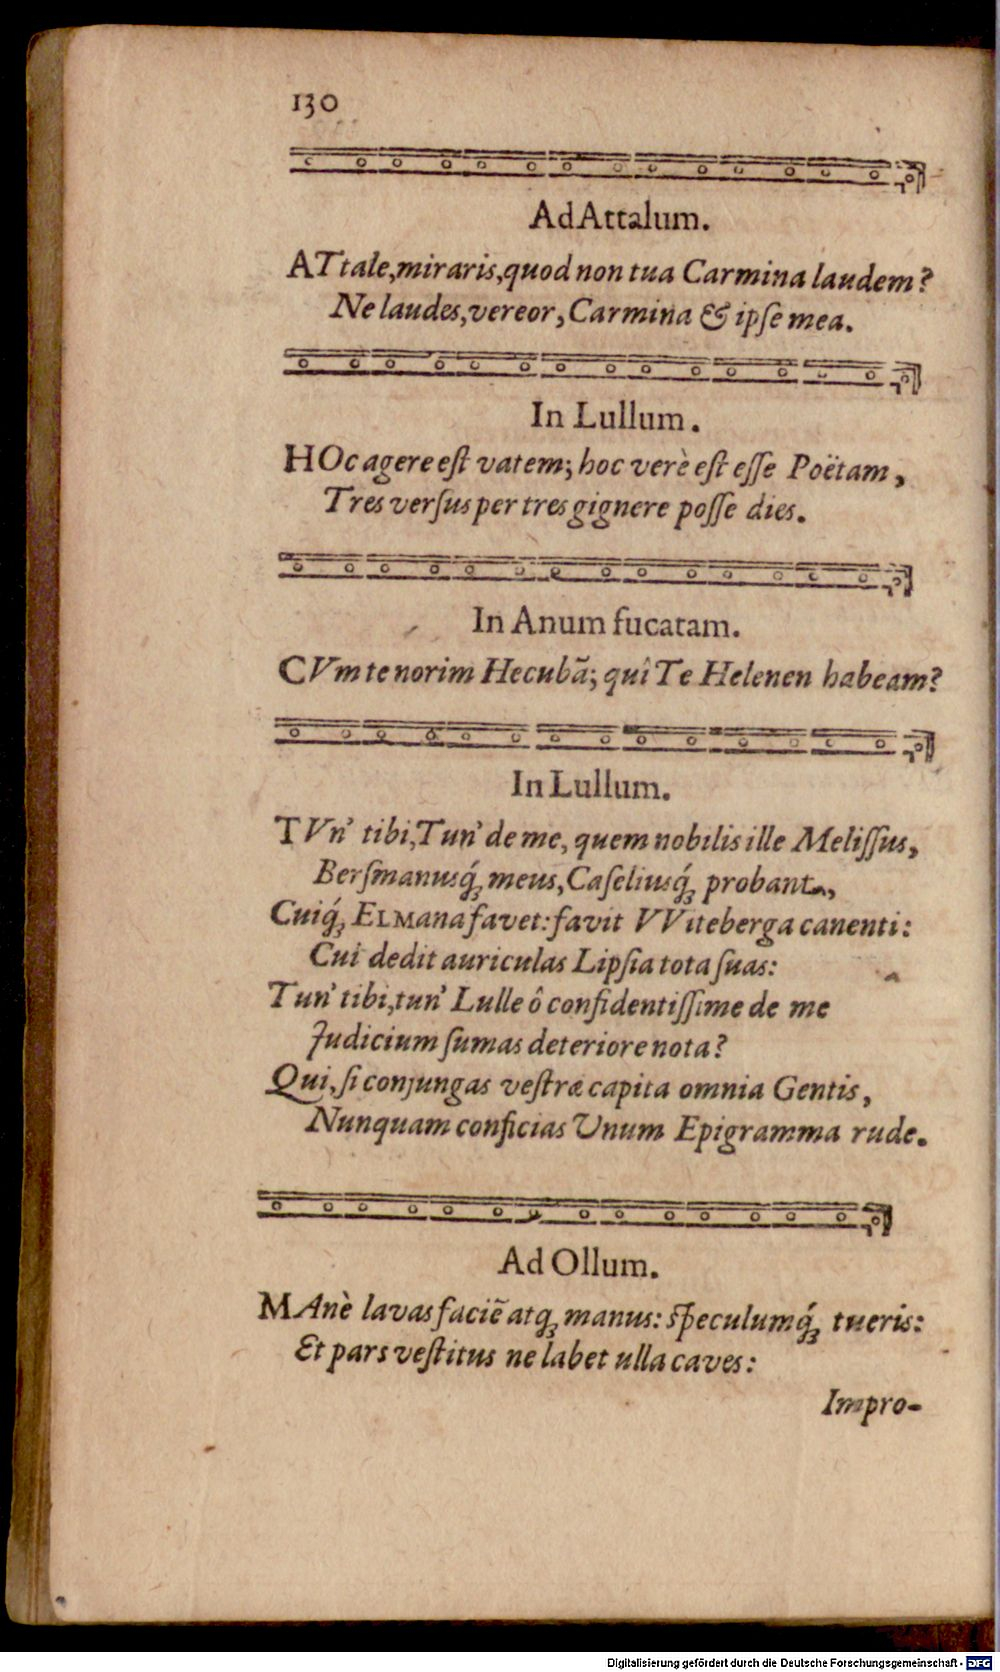 130
Ad Attalum.
ATtale, miraris, quod non tua Carmina laudem?
Ne laudes, vereor, Carmina & ipſe mea.
In Lullum.
HOc agere eſt vatem; hoc verè eſt eſſe Poëtam,
Tres verſus per tres gignere poſſe dies.
In Anum fucatam.
CVm te norim Hecubā; quî Te Helenen habeam?
In Lullum.
TVn' tibi, Tun' de me, quem nobilis ille Meliſſus,
Berſmanusq́; meus, Caſeliusq́; probant,
Cuiq́; ELMana favet: favit VViteberga canenti:
Cui dedit auriculas Lipſia tota ſuas:
Tun' tibi, tun' Lulle ô confidentiſſime de me
Judicium ſumas deteriore nota?
Qui, ſi conjungas veſtræ capita omnia Gentis,
Nunquam conficias Unum Epigramma rude.
Ad Ollum.
MAnè lavas faciē atq; manus: ſpeculumq́; tueris:
Et pars veſtitus ne labet ulla caves:
Impro-
Digitalisierung gefördert durch die Deutsche Forschungsgemeinschaft - DFG